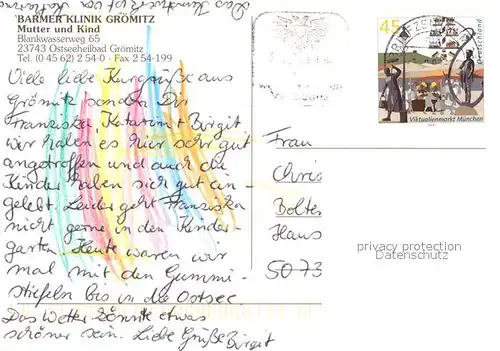 Das
BARMER KLINIK GRÖMITZ
Mutter und Kind
Blankwasserweg 65
23743 Ostseeheilbad Grömitz
Tel. (0 45 62) 2 54-0 · Fax 2 54-199
Viele liebe Kurgrüße aus
Grömitz senden Dir
Franziska Katarina + Birgit
wir haben es hier sehr gut
angetroffen und auch die
Kinder haben sich gut ein-
gelebt. Leider geht Franziska
nicht gerne in den Kinder-
garten. Heute waren wir
mal mit den Gummi-
stiefeln bis in die Ostsee.
Das Wetter könnte etwas
schöner sein. Liebe Grüße Birgit
45
Deutschland
BRIEFZEN
Viktualienmarkt München
Frau
Chris
Bolte
Haus
5073
privacy protection
Datenschutz